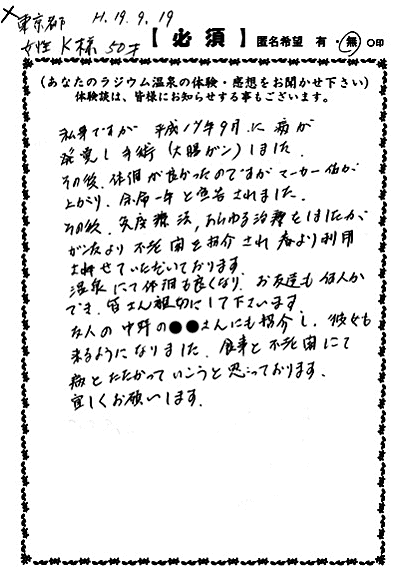 東京都 H.19.9.19
女性 K様 50才
【必須】 匿名希望 有・無 ○印
(あなたのラジウム温泉の体験・感想をお聞かせ下さい)
体験談は、皆様にお知らせする事もございます。
私事ですが 平成17年9月に病が
発覚し手術(大腸ガン)しました.
その後.体調が良かったのですがマーカー値が
上がり.余命一年と宣告されました.
その後.免疫療法,あらゆる治療をしましたが.
がん友より不老閣を紹介され春より利用
させていただいております.
温泉にて体調も良くなり.お友達も何人か
でき.皆さん親切にして下さいます
友人の中野の●●さんにも紹介し.彼女も
来るようになりました.食事と不老閣にて
病とたたかっていこうと思っております.
宜しくお願いします.